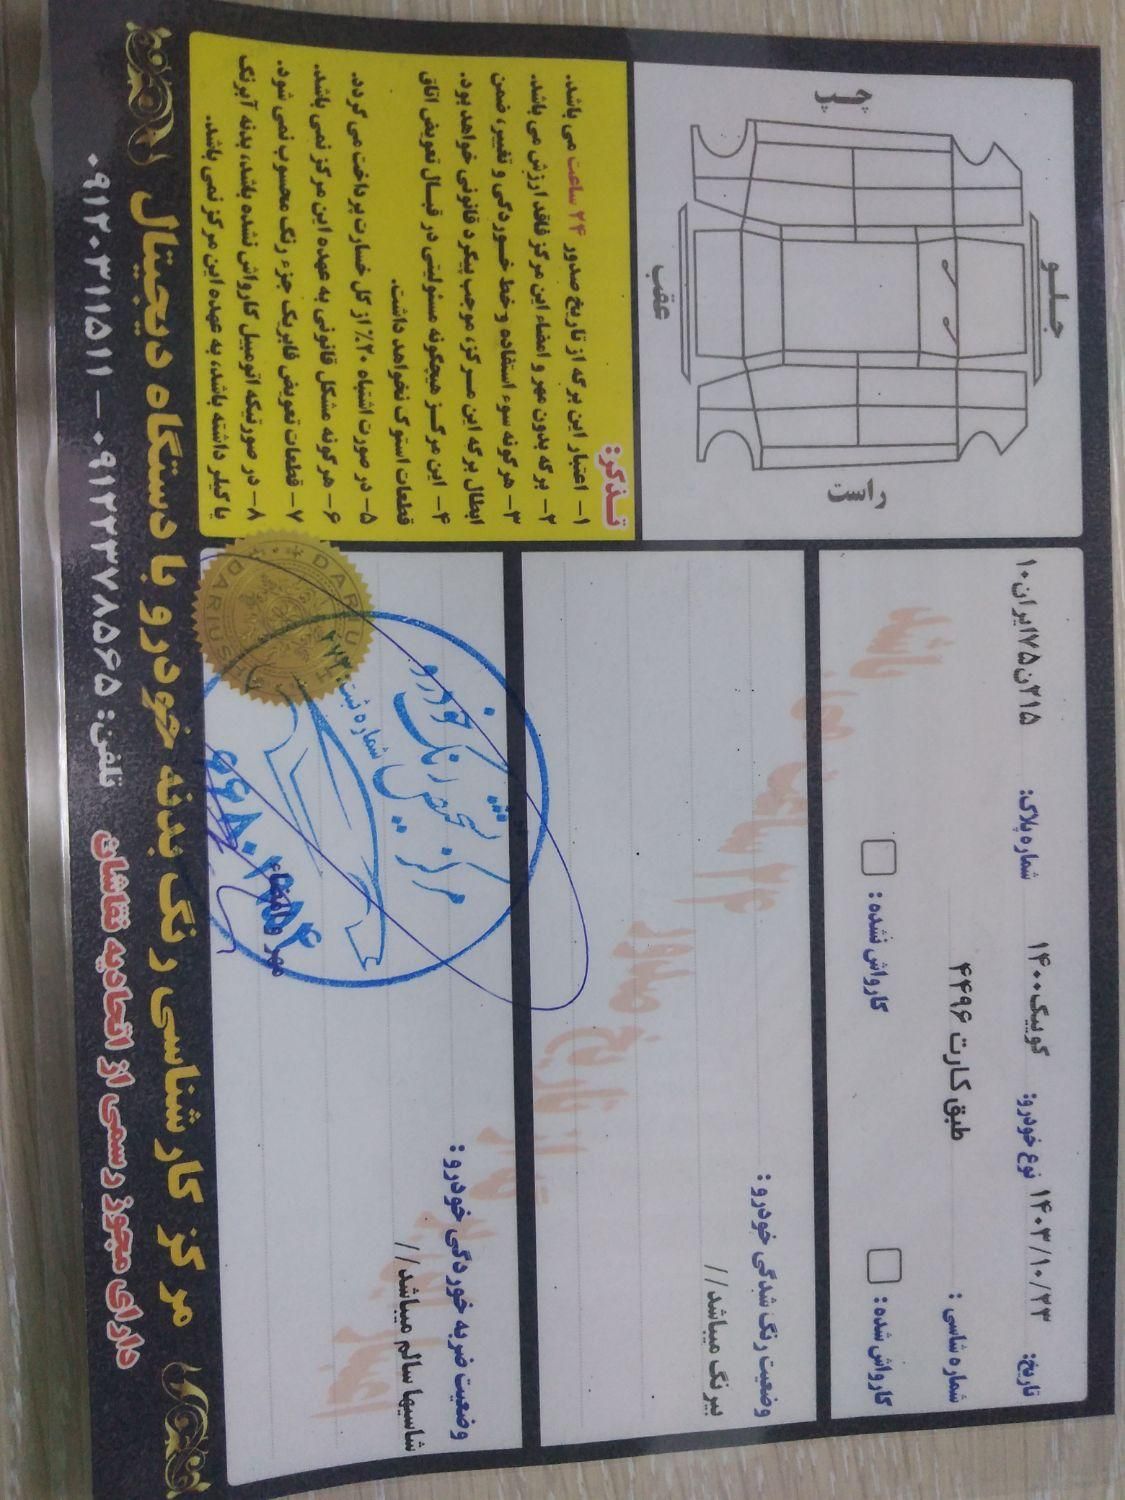 تاریخ: ۱۴۰۳/۱۰/۲۳ نوع خودرو: کوییک۱۴۰۰ شماره پلاک: ۲۱۵ن۷۵ایران۱۰
شماره شاسی: طبق کارت ۴۴۹۶
کارواش شده: کارواش نشده:
وضعیت رنگ شدگی خودرو:
بیرنگ میباشد//
وضعیت ضربه خوردگی خودرو:
شاسیها سالم میباشد//
مهر و امضاء
اعتبار
از تاریخ صدور
۲۴ ساعت
می باشد
مرکز تشخیص رنگ خودرو
شماره ثبت:
DARIUSH
جلو
چپ
راست
عقب
تـذکر:
۱- اعتبار این برگه از تاریخ صدور ۲۴ ساعت می باشد.
۲- برگه بدون مهر و امضاء این مرکز فاقد ارزش می باشد.
۳- هرگونه سوء استفاده و خط خـوردگی و تغییر، ضمن
ابطال برگه این مـرکز، موجب پیگرد قانونی خواهد بود.
۴- این مرکـز هیچگونه مسئولیتی در قبـال تعویض اتاق
قطعات استوک نخواهد داشت.
۵- در صورت اشتباه ۲۰٪ از کل خسارت پرداخت می گردد.
۶- هر گونه مشکل قانونی به عهده این مرکز نمی باشد.
۷- قطعات تعویض فابریک جزء رنگ محسوب نمی شود.
۸- در صورتیکه اتومبیل کارواش نشده باشد، بدنه آبرنگ
یا کیلر داشته باشد، به عهده این مرکز نمی باشد.
مرکز کارشناسی رنگ بدنه خودرو با دستگاه دیجیتال
دارای مجوز رسمی از اتحادیه نقاشان تلفن: ۰۹۱۲۲۳۷۸۵۶۵ - ۰۹۱۲۰۳۱۱۵۱۱